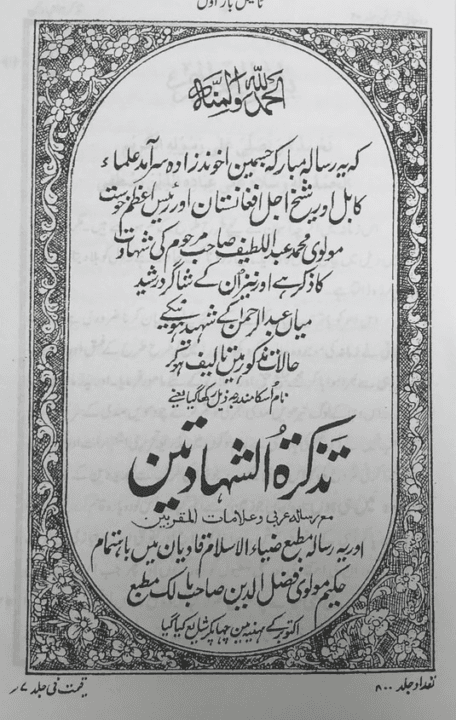 ٹائیٹل بار اول
الحمد للہ والمنۃ
کہ یہ رسالہ مبارکہ جسمین اخوندزادہ سرآمد علماء
کابل اور شیخ اجل افغانستان اور رئیس اعظم خوست
مولوی محمد عبد اللطیف صاحب مرحوم کی شہادت
کا ذکر ہے اور نیز ان کے شاگرد رشید
میاں عبد الرحمن کے شہید ہونیکے
حالات مذکور ہیں تالیف ہوکر
نام اسکا مندرجہ ذیل رکھا گیا یعنے
تذکرۃ الشہادتین
معہ رسالہ عربی و علامات المقربین
اور یہ رسالہ مطبع ضیاء الاسلام قادیان میں باہتمام
حکیم مولوی فضل الدین صاحب مالک مطبع
اکتوبر کے مہینہ مین چھاپکر شایع کیا گیا
تعداد جلد ۸۰۰
قیمت فی جلد ۷/